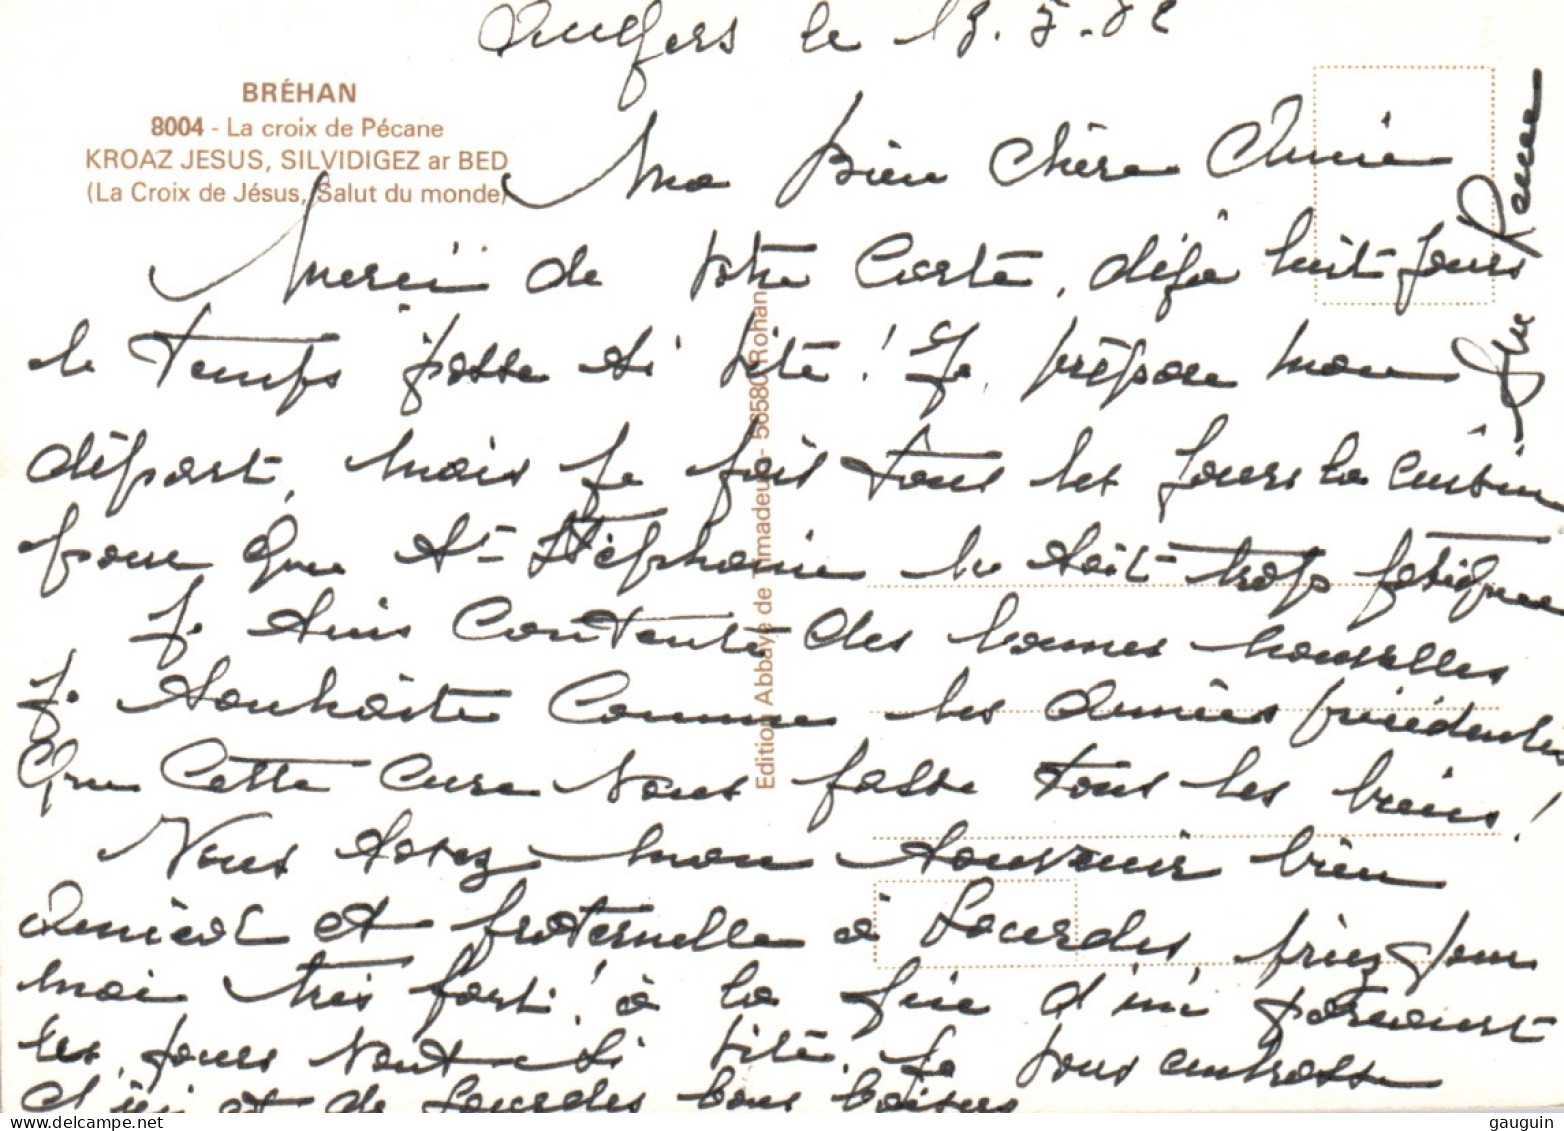 le 13.5.82
BRÉHAN
8004 - La croix de Pécane
KROAZ JESUS, SILVIDIGEZ ar BED
(La Croix de Jésus, Salut du monde)
Ma bien chère Annie
Merci de votre Carte, déjà huit jours
le temps passe si vite ! Je prépare mon
départ, mais je fais tous les jours la cuisine
pour que St Stéphanie ne soit trop fatiguée
Je suis contente des bonnes nouvelles
Je souhaite comme les années précédentes
Que cette cure vous fasse tous les biens !
Vous avez mon souvenir bien
amical et fraternelle à Lourdes, priez pour
moi très fort ! à la fin d'ici
les jours vont si vite. Je vous embrasse
d'ici et de Lourdes bons baisers
Edition Abbaye de Timadeuc - 56580 Rohan
gauguin